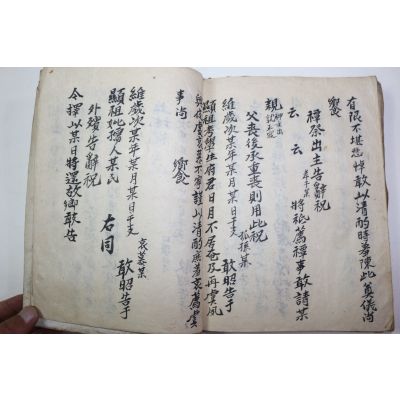 有限不堪悲悼敢以清酌時羞陳此奠儀尚
饗
禫祭出主告辭祝
云 云 將祗薦禫事敢請某
親
父喪後承重喪則用此祝
維歲次某年某月某日干支 孤孫某 敢昭告于
顯祖考學生府君日月不居奄及再虞夙
興夜處哀慕不寧謹以清酌庶羞哀薦虞
事尚 饗
維歲次某年某月某日干支 哀孫某 敢昭告于
顯祖妣孺人某氏 右同
外殯告辭祝
今擇以某日將還故鄉敢告